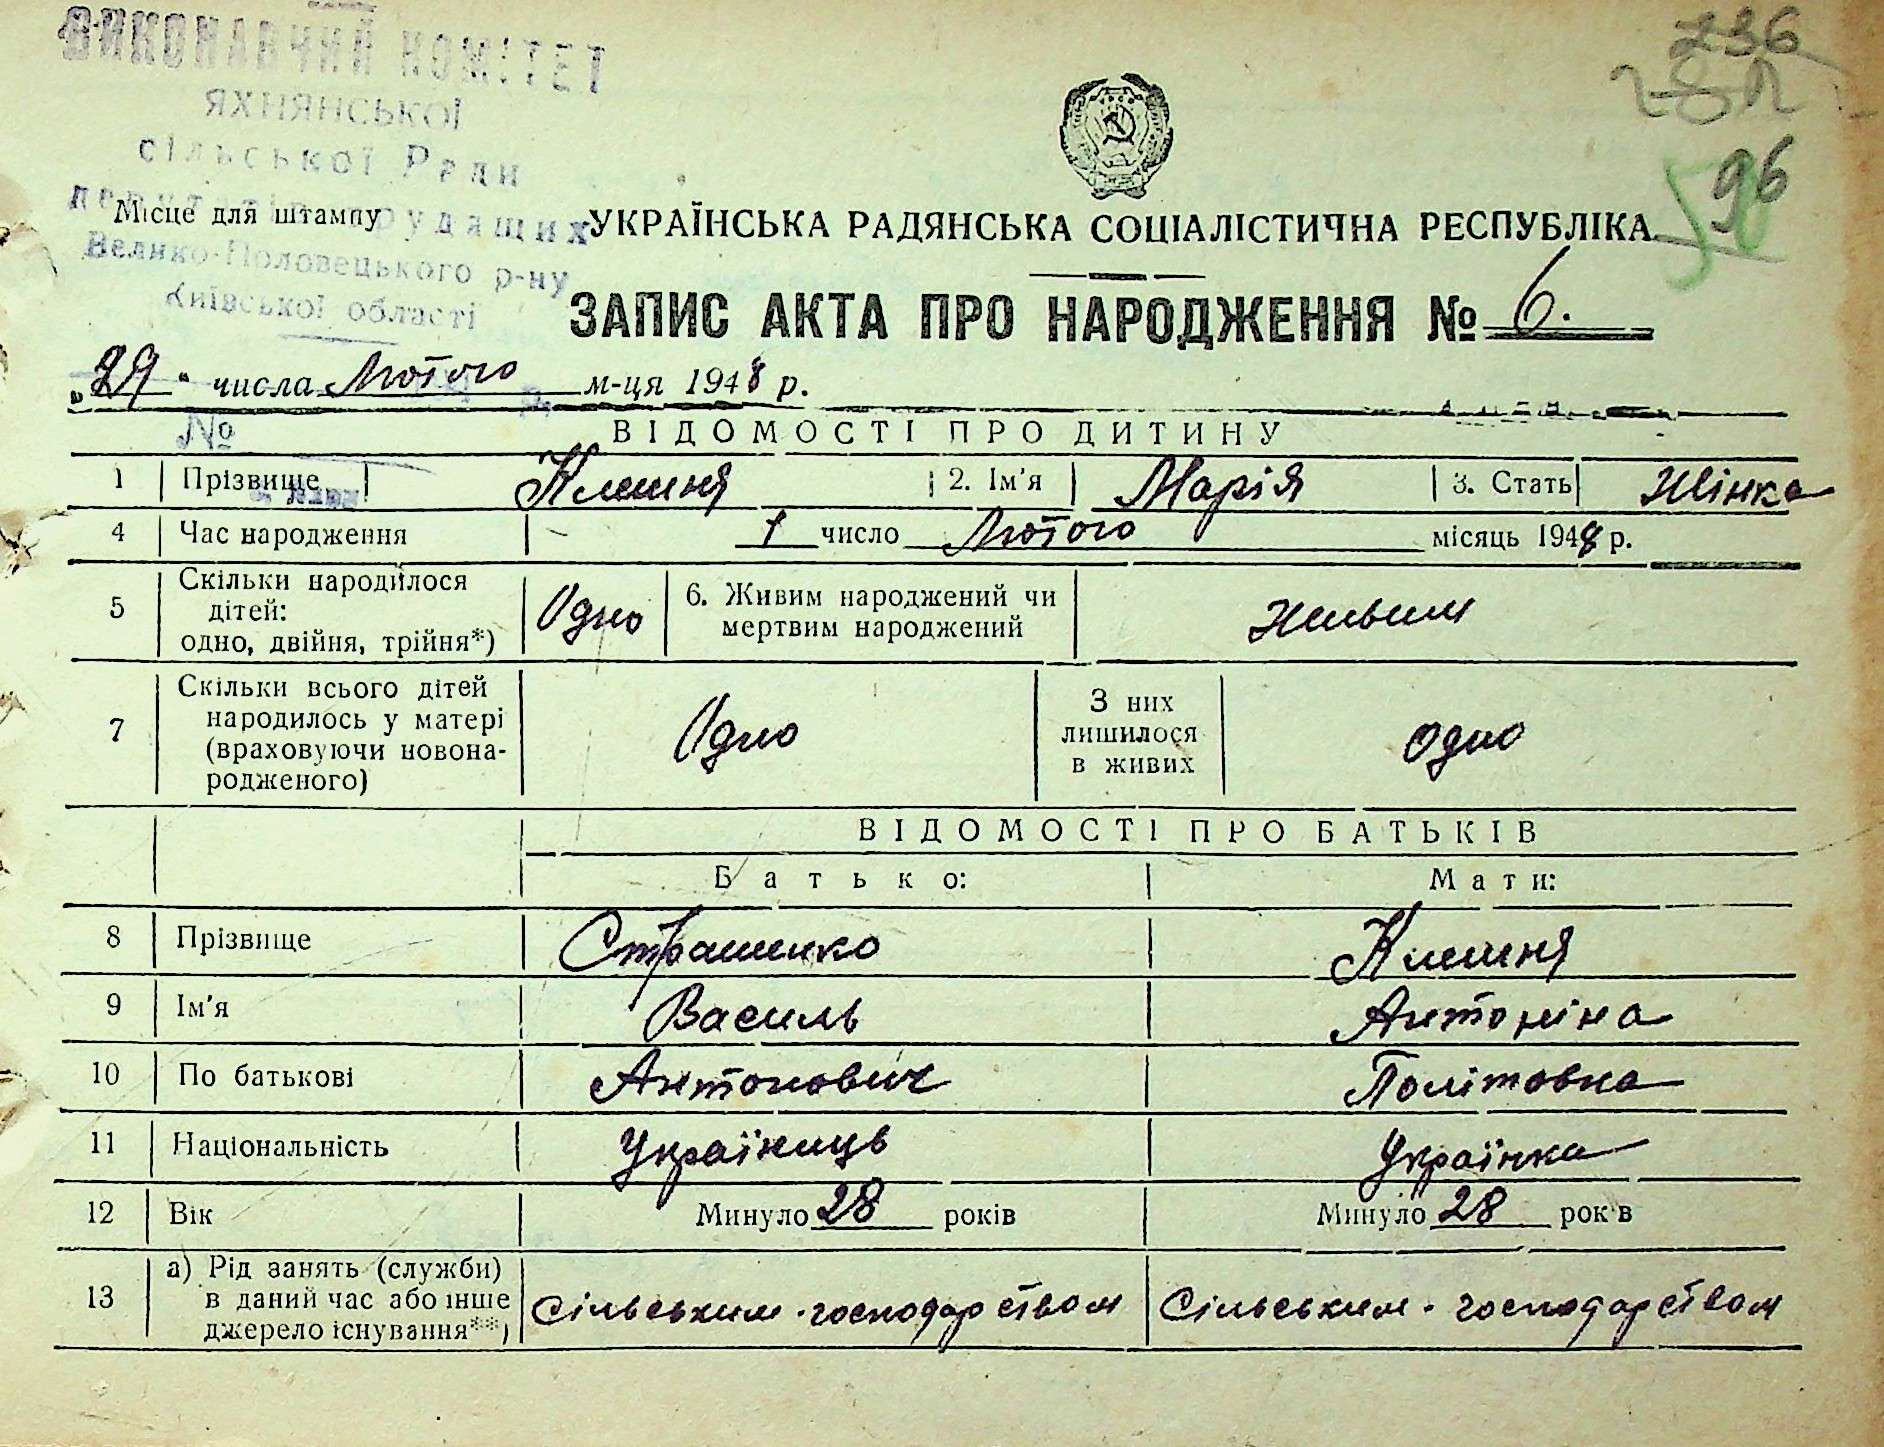 ВИКОНАВЧИЙ КОМІТЕТ
ЯХНЯНСЬКОЇ
сільської Ради
депутатів трудящих
Велико-Половецького р-ну
Київської області
236
96
50
Місце для штампу
УКРАЇНСЬКА РАДЯНСЬКА СОЦІАЛІСТИЧНА РЕСПУБЛІКА
ЗАПИС АКТА ПРО НАРОДЖЕННЯ № 6.
„29“ числа Лютого м-ця 1948 р.
№
ВІДОМОСТІ ПРО ДИТИНУ
1 Прізвище Клешня 2. Ім'я Марія 3. Стать Жінка
4 Час народження 1 число Лютого місяць 1948 р.
5 Скільки народилося дітей: одно, двійня, трійня*) Одно 6. Живим народжений чи мертвим народжений Живим
7 Скільки всього дітей народилось у матері (враховуючи новонародженого) Одно З них лишилося в живих Одно
ВІДОМОСТІ ПРО БАТЬКІВ
Батько: Мати:
8 Прізвище Страшенко Клешня
9 Ім'я Василь Антоніна
10 По батькові Антонович Політовна
11 Національність Україниць Українка
12 Вік Минуло 28 років Минуло 28 рок в
13 а) Рід занять (служби) в даний час або інше джерело існування**) Сільським-господарством Сільським-господарством